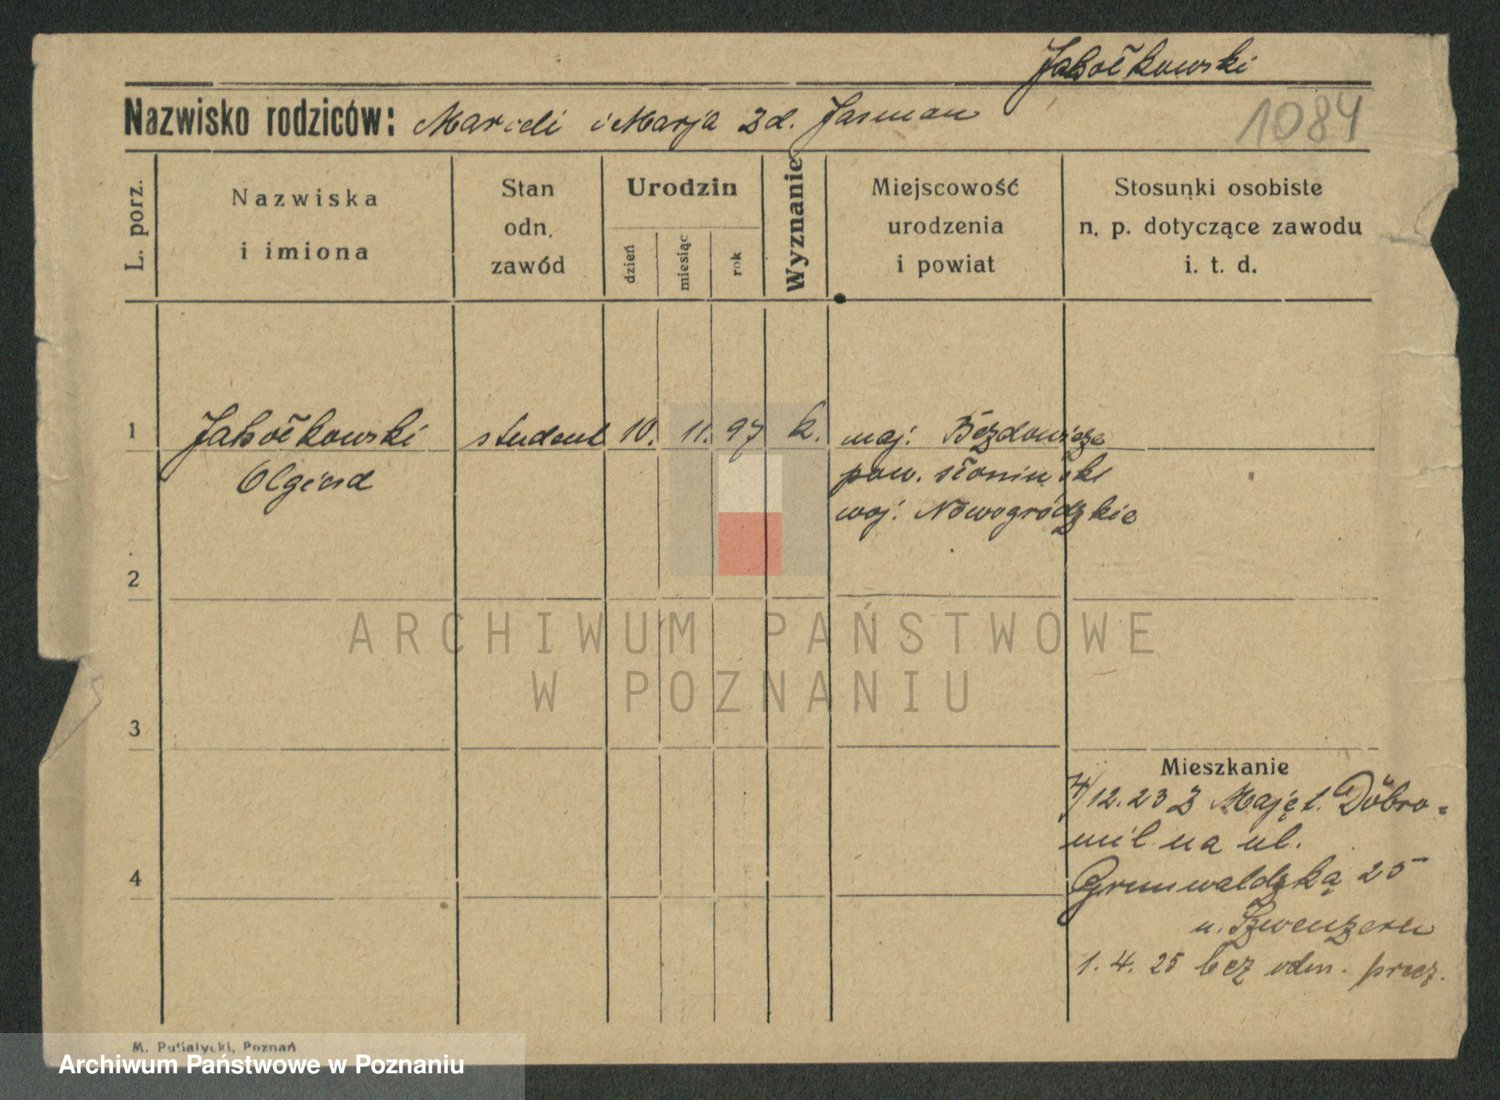 Jabołkowski
Nazwisko rodziców: Marceli i Marja zd. Jasman
1084
L. porz.
Nazwiska
i imiona
Stan
odn.
zawód
Urodzin
dzień
miesiąc
rok
Wyznanie
Miejscowość
urodzenia
i powiat
Stosunki osobiste
n. p. dotyczące zawodu
i. t. d.
1 Jabołkowski student 10. 11. 97 k. maj. Bezdowicze
Olgierd pow. słonimski
woj. Nowogródzkie
2
3
Mieszkanie
/12.23 Z Majęt. Dobro-
mil na ul.
4 Grunwaldzką 25
u.
1.4.25 bez odm. prez.
M. Putiatycki, Poznań
ARCHIWUM PAŃSTWOWE
W POZNANIU
Archiwum Państwowe w Poznaniu